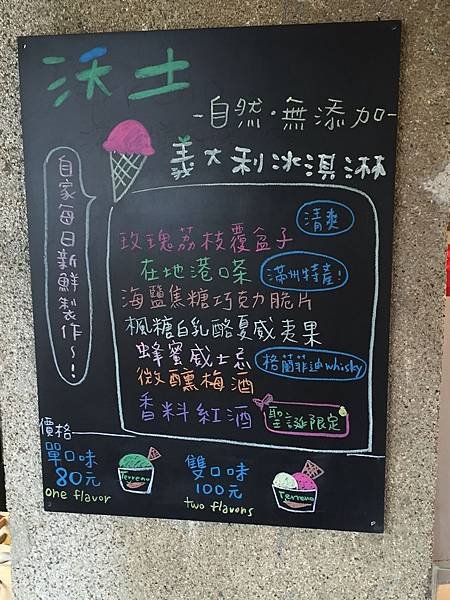 沃土
-自然·無添加-
義大利冰淇淋
自家每日新鮮製作~!
玫瑰荔枝覆盆子
清爽
在地港口茶
滿州特產!
海鹽焦糖巧克力脆片
楓糖白乳酪夏威夷果
蜂蜜威士忌
格蘭菲迪whisky
微醺梅酒
香料紅酒
聖誕限定
價格
單口味
80元
one flavor
Terreno
雙口味
100元
two flavors
Terreno